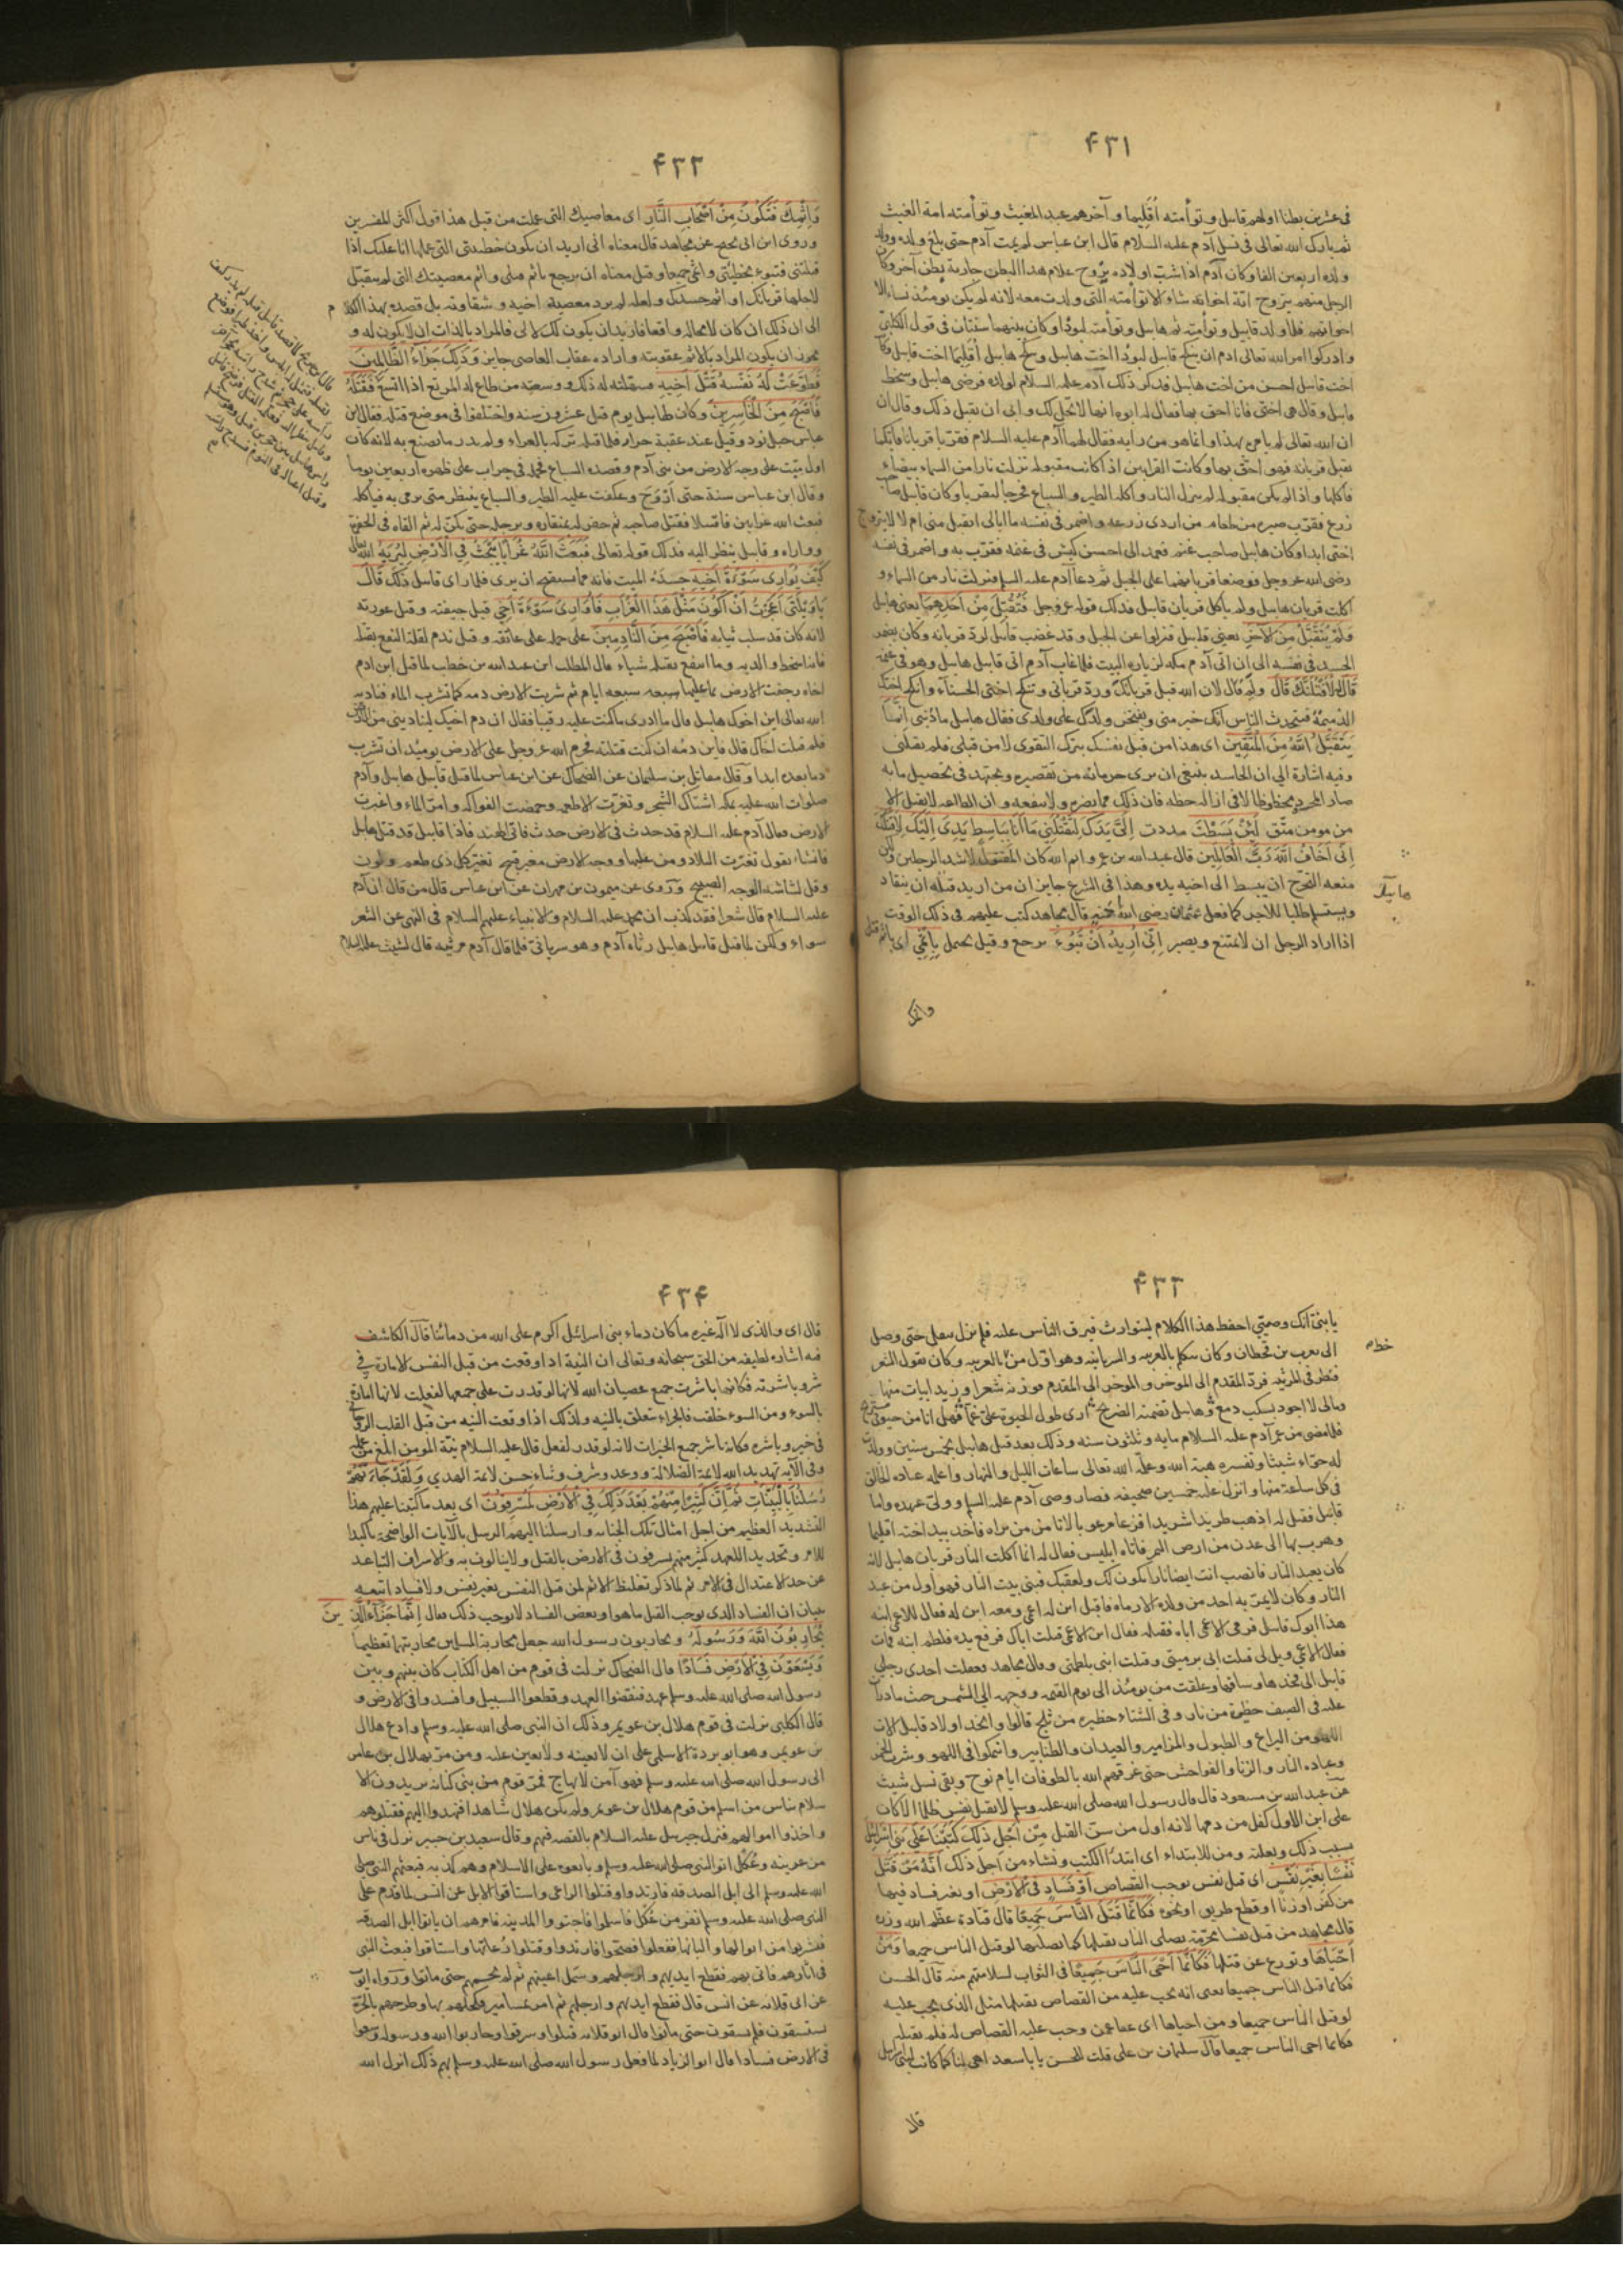 ۴۳۱
فى عشرين بطنا اولهم قابيل وتوأمته اقليما وآخرهم عبد المغيث وتوأمته امة المغيث
ثم بارك الله تعالى فى نسل آدم عليه السلام قال ابن عباس لم يمت آدم حتى بلغ ولده وولد
ولده اربعين الفا وكان آدم اذا شب اولاده يزوج غلام هذا البطن جارية بطن آخر وكان
الرجل منهم يتزوج اية اخواته شاء الا توأمته التى ولدت معه لانه لم يكن يومئذ نساء الا
اخواتهم فلما ولد قابيل وتوأمته ثم هابيل وتوأمته لبودا وكان بينهما سنتان فى قول الكلبى
وادركوا امر الله تعالى ادم ان ينكح قابيل لبودا اخت هابيل وينكح هابيل اقليما اخت قابيل وكانت
اخت قابيل احسن من اخت هابيل فذكر ذلك آدم عليه السلام لولده فرضى هابيل وسخط
قابيل وقال هى اختى فانا احق بها فقال له ابوه انها لا تحل لك وابى ان يقبل ذلك وقال ان
ان الله تعالى لم يامره بهذا وانما هو من رايه فقال لهما آدم عليه السلام فقربا قربانا فايكما
تقبل قربانه فهو احق بها وكانت القرابين اذا كانت مقبولة نزلت نار من السماء بيضاء
فاكلتها واذا لم يكن مقبولة لم ينزل النار واكله الطير والسباع فخرجا ليقربا وكان قابيل صاحب
زرع فقرب صبرة من طعام من اردى زرعه واضمر فى نفسه ما ابالى ايقبل منى ام لا لا يتزوج
اختى ابدا وكان هابيل صاحب غنم فعمد الى احسن كبش فى غنمه فقرب به واضمر فى نفسه
رضى الله عز وجل فوضعا قربانهما على الجبل ثم دعا آدم عليه السلم فنزلت نار من السماء و
اكلت قربان هابيل ولم ياكل قربان قابيل فذلك قوله عز وجل فَتُقُبِّلَ مِنْ اَحَدِهِمَا يعنى هابيل
وَلَمْ يُتَقَبَّلْ مِنَ الْآخَرِ يعنى قابيل فنزلوا عن الجبل وقد غضب قابيل لرد قربانه وكان يضمر
الحسد فى نفسه الى ان اتى آدم مكة لزيارة البيت فلما غاب آدم اتى قابيل هابيل وهو فى غنمه
قَالَ لَاَقْتُلَنَّكَ قَالَ ولم قال لان الله قبل قربانك ورد قربانى وتنكح اختى الحسناء وانكح اختك
الذميمة فيتحدث الناس انك خير منى ويفتخر ولدك على ولدى فقال هابيل ما ذنبى اِنَّمَا
يَتَقَبَّلُ اللّٰهُ مِنَ الْمُتَّقِينَ اى هذا من قبل نفسك بترك التقوى لا من قبلى فلم تقتلنى
وفيه اشارة الى ان الحاسد ينبغى ان يرى حرمانه من تقصيره ويجتهد فى تحصيل ما به
صار المحسود محظوظا لا فى ازالة حظه فان ذلك مما يضره ولا ينفعه وان الطاعة لا يقبل الا
من مومن متق لَئِنْ بَسَطْتَ مددت اِلَىَّ يَدَكَ لِتَقْتُلَنِى مَا اَنَا بِبَاسِطٍ يَدِىَ اِلَيْكَ لِاَقْتُلَكَ
اِنِّى اَخَافُ اللّٰهَ رَبَّ الْعَالَمِينَ قال عبد الله بن عمرو ايم الله كان المقتول لاشد الرجلين ولكن
منعه التحرج ان يبسط الى اخيه يده وهذا فى الشرع جايز ان من اريد قتله ان ينقاد
ويستسلم طلبا للاجر كما فعل عثمان رضى الله عنه قال مجاهد كتب عليهم فى ذلك الوقت
اذا اراد الرجل ان لا يمتنع ويصبر اِنِّى اُرِيدُ اَنْ تَبُوءَ ترجع وقيل تحمل بِاِثْمِى اى باثم قتلى
۴۳۲
وَاِثْمِكَ فَتَكُونَ مِنْ اَصْحَابِ النَّارِ اى معاصيك التى عملت من قبل هذا قول اكثر المفسرين
وروى ابن ابى نجيح عن مجاهد قال معناه انى اريد ان يكون خطيئتى التى عملها انا عليك اذا
قتلتنى فتبوء بخطيئتى واثمى جميعا وقيل معناه ان يرجع باثم قتلى واثم معصيتك التى لم يتقبل
لاجلها قربانك او اثم حسدك ولعله لم يرد معصية اخيه وشقاوته بل قصده بهذا الكلام
الى ان ذلك ان كان لا محالة واقعا فاريد ان يكون لك لا لى فالمراد بالذات ان لا يكون له و
يجوز ان يكون المراد بالاثم عقوبته وارادة عقاب العاصى جايز وَذٰلِكَ جَزَاءُ الظَّالِمِينَ
فَطَوَّعَتْ لَهُ نَفْسُهُ قَتْلَ اَخِيهِ فسهلته له ذلك ووسعته من طاع له المرتع اذا اتسع فَقَتَلَهُ
فَاَصْبَحَ مِنَ الْخَاسِرِينَ وكان لهابيل يوم قتل عشرون سنة واختلفوا فى موضع قتله فقال ابن
عباس جبل نود وقيل عند عقبة حراء فلما قتله تركه بالعراء ولم يدر ما يصنع به لانه كان
اول ميت على وجه الارض من بنى آدم وقصده السباع فحمله فى جراب على ظهره اربعين يوما
وقال ابن عباس سنة حتى اروح وعكفت عليه الطير والسباع ينتظر متى يرمى به فياكله
فبعث الله غرابين فاقتتلا فقتل صاحبه ثم حفر له بمنقاره وبرجله حتى مكن له ثم القاه فى الحفرة
وواراه وقابيل ينظر اليه فذلك قوله تعالى فَبَعَثَ اللّٰهُ غُرَابًا يَبْحَثُ فِى الْاَرْضِ لِيُرِيَهُ الله تعالى
كَيْفَ يُوَارِى سَوْءَةَ اَخِيهِ جسده الميت فانه مما يستقبح ان يرى فلما راى قابيل ذلك قَالَ
يَاوَيْلَتٰى اَعَجَزْتُ اَنْ اَكُونَ مِثْلَ هٰذَا الْغُرَابِ فَاُوَارِىَ سَوْءَةَ اَخِى قيل جيفته وقيل عورته
لانه كان قد سلب ثيابه فَاَصْبَحَ مِنَ النَّادِمِينَ على حمله على عاتقه وقيل ندم لقلة النفع بقتله
فانه اسخط والديه وما انتفع بقتله شياء قال المطلب ابن عبد الله بن خطب لما قتل ابن ادم
اخاه رجفت الارض بما عليها سبعة ايام ثم شربت الارض دمه كما تشرب الماء فناديه
الله تعالى اين اخوك هابيل قال ما ادرى ما كنت عليه رقيبا فقال ان دم اخيك ليناديني من الارض
فلم قتلت اخاك قال فاين دمه ان كنت قتلته فحرم الله عز وجل على الارض يومئذ ان تشرب
دما بعده ابدا وقال مقاتل بن سليمان عن الضحاك عن ابن عباس لما قتل قابيل هابيل وآدم
صلوات الله عليه بمكة اشتاك الشجر وتغيرت الاطعمة وحمضت الفواكه وامر الماء واغبرت
الارض فقال آدم عليه السلام قد حدث فى الارض حدث فاتى الهند فاذا قابيل قد قتل هابيل
فانشاء يقول تغيرت البلاد ومن عليها ووجه الارض مغبر قبيح تغير كل ذى طعم ولون
وقل بشاشة الوجه الصبيح وروى عن ميمون بن مهران عن ابن عباس قال من قال ان آدم
عليه السلام قال شعرا فقد كذب ان محمد عليه السلام والانبياء عليهم السلام فى النهى عن الشعر
سواء ولكن لما قتل قابيل هابيل رثاه آدم وهو سريانى فلما قال آدم مرثيه قال لشيث عليه السلام
۴۳۳
يا بنى انك وصيتى احفظ هذا الكلام ليتوارث فيرق الناس عليه فلم يزل ينقل حتى وصل
الى يعرب بن قحطان وكان يتكلم بالعربيه والسريانيه وهو اول من بالعربيه وكان يقول الشعر
فنظر فى المرثيه فرد المقدم الى الموخر والموخر الى المقدم فوزنه شعرا وزيد ابيات منها
ومالى لا اجود بسكب دمع وهابيل تضمنه الضريح ارى طول الحيوة على غما فهل انا من حيوتى مستريح
فلما مضى من عمر آدم عليه السلام مايه وثلثون سنه وذلك بعد قتل هابيل بخمس سنين وولدت
له حواء شيثا وتفسيره هبة الله وعلمه الله تعالى ساعات الليل والنهار واعلمه عبادة الخالق
فى كل ساعة منها وانزل عليه خمسين صحيفة فصار وصى آدم عليه السلم وولى عهده واما
قابيل فقيل له اذهب طريدا شريدا فزعا مرعوبا لا تامن من تراه فاخذ بيد اخته اقليما
وهرب بها الى عدن من ارض اليمن فاتاه ابليس فقال له انما اكلت النار قربان هابيل لانه
كان يعبد النار فانصب انت ايضا نارا يكون لك ولعقبك فبنى بيت النار فهو اول من عبد
النار وكان لا يمر به احد من ولده الا رماه فاقبل ابن له اعمى ومعه ابن له فقال للاعمى ابنه
هذا ابوك قابيل فرمى الاعمى اباه فقتله فقال ابن الاعمى قتلت اباك فرفع يده فلطم ابنه فمات
فقال الاعمى ويل لى قتلت ابى برميتى وقتلت ابنى بلطمتى وقال مجاهد فعقلت احدى رجلى
قابيل الى فخذها وساقها وعلقت من يومئذ الى يوم القيمه ووجهه الى الشمس حيث مادارت
عليه فى الصيف حظيرة من نار وفى الشتاء حظيره من ثلج قالوا واتخذ اولاد قابيل الات
اللهو من اليراع والطبول والمزامير والعيدان والطنابير وانهمكوا فى اللهو وشرب الخمر
وعبادة النار والزنا والفواحش حتى غرقهم الله بالطوفان ايام نوح وبقى نسل شيث
عن عبد الله بن مسعود قال قال رسول الله صلى الله عليه وسلم لا يقتل نفس ظلما الا كان
على ابن الاول كفل من دمها لانه اول من سن القتل مِنْ اَجْلِ ذٰلِكَ كَتَبْنَا عَلٰى بَنِى اِسْرَائِيلَ
بسبب ذلك وبعلته ومن للابتداء اى ابتداء الكتب ونشاء من اجل ذلك اَنَّهُ مَنْ قَتَلَ
نَفْسًا بِغَيْرِ نَفْسٍ اى قبل نفس يوجب القصاص اَوْ فَسَادٍ فِى الْاَرْضِ او بغير فساد فيها
من كفر او زنا او قطع طريق او نحوه فَكَاَنَّمَا قَتَلَ النَّاسَ جَمِيعًا قال قتادة عظم الله وزره
قال مجاهد من قتل نفسا محرمة يصلى النار بقتلها كما يصليها لو قتل الناس جميعا وَمَنْ
اَحْيَاهَا وتورع عن قتلها فَكَاَنَّمَا اَحْيَى النَّاسَ جَمِيعًا فى الثواب لسلامتهم منه قال الحسن
فكانما قتل الناس جميعا يعنى انه يجب عليه من القصاص بقتلها مثل الذى يجب عليه
لو قتل الناس جميعا ومن احياها اى عفا عمن وجب عليه القصاص له فلم يقتله
فكانما احى الناس جميعا قال سليمان بن على قلت للحسن يا باسعيد اهى لنا كما كانت لبنى اسرائيل
قال
۴۳۴
قال اى والذى لا اله غيره ما كان دماء بنى اسرائيل اكرم على الله من دمائنا قال الكاشف
فيه اشارة لطيفه من الحق سبحانه وتعالى ان النية اذا وقعت من قبل النفس الامارة فى
شر وباشرته فكانها باشرت جميع عصيان الله لانها لو قدرت على جمعها لفعلت لانها امارة
بالسوء ومن السوء خلقت فالجزاء يتعلق بالنيه ولذلك اذا وقعت النيه من قبل القلب الروحانى
فى خير وباشره فكانه باشر جميع الخيرات لانه لو قدر لفعل قال عليه السلام نية المومن ابلغ من عمله
وفى الآية تهديد الله لائمة الضلالة ووعد وشرف وثناء حسن لائمة الهدى وَلَقَدْ جَاءَتْهُمْ
رُسُلُنَا بِالْبَيِّنَاتِ ثُمَّ اِنَّ كَثِيرًا مِنْهُمْ بَعْدَ ذٰلِكَ فِى الْاَرْضِ لَمُسْرِفُونَ اى بعد ما كتبنا عليهم هذا
التشديد العظيم من اجل امثال تلك الجنايه وارسلنا اليهم الرسل بالآيات الواضحة تاكيدا
للامر وتجديد اللعهد كثير منهم يسرفون فى الارض بالقتل ولا يبالون به والاسراف التباعد
عن حد الاعتدال فى الامر ثم لما ذكر تغليظ الاثم لمن قتل النفس بغير نفس ولا فساد اتبعه
ببيان ان الفساد الذى يوجب القتل ما هو او بعض الفساد لا يوجب ذلك فقال اِنَّمَا جَزَاءُ الَّذِينَ
يُحَارِبُونَ اللّٰهَ وَرَسُولَهُ ويحاربون رسول الله جعل محاربة المسلمين محاربتهما تعظيما
وَيَسْعَوْنَ فِى الْاَرْضِ فَسَادًا قال الضحاك نزلت فى قوم من اهل الكتاب كان بينهم وبين
رسول الله صلى الله عليه وسلم عهد فنقضوا العهد وقطعوا السبيل وافسدوا فى الارض و
قال الكلبى نزلت فى قوم هلال بن عويمر وذلك ان النبى صلى الله عليه وسلم وادع هلال
بن عويمر وهو ابو بردة الاسلمى على ان لا يعينه ولا يعين عليه ومن مر بهلال بن عامر
الى رسول الله صلى الله عليه وسلم فهو آمن لا يهاج فمر قوم من بنى كنانة يريدون الا
سلام بناس من اسلم من قوم هلال بن عويمر ولم يكن هلال شاهدا فنهدوا اليهم فقتلوهم
واخذوا اموالهم فنزل جبريل عليه السلام بالقصة فيهم وقال سعيد بن جبير نزل فى ناس
من عرينه وعكل اتوا النبى صلى الله عليه وسلم وبايعوه على الاسلام وهم كذبه فبعثهم النبى صلى
الله عليه وسلم الى ابل الصدقه فارتدوا وقتلوا الراعى واستاقوا الابل عن انس لما قدم على
النبى صلى الله عليه وسلم نفر من عكل فاسلموا فاجتووا المدينه فامرهم ان ياتوا ابل الصدقه
فيشربوا من ابوالها والبانها ففعلوا فصحوا فارتدوا وقتلوا رعاتها واستاقوا فبعث النبى
فى اثارهم فاتى بهم فقطع ايديهم وارجلهم وسمل اعينهم ثم لم يحسمهم حتى ماتوا ورواه ايوب
عن ابى قلابه عن انس قال فقطع ايديهم وارجلهم ثم امر بمسامير فكحلهم بها وطرحهم بالحرة
يستسقون فلم يسقون حتى ماتوا قال ابو قلابه قتلوا وسرقوا وحاربوا الله ورسوله وسعوا
فى الارض فسادا قال ابو الزناد لما فعل رسول الله صلى الله عليه وسلم بهم ذلك انزل الله